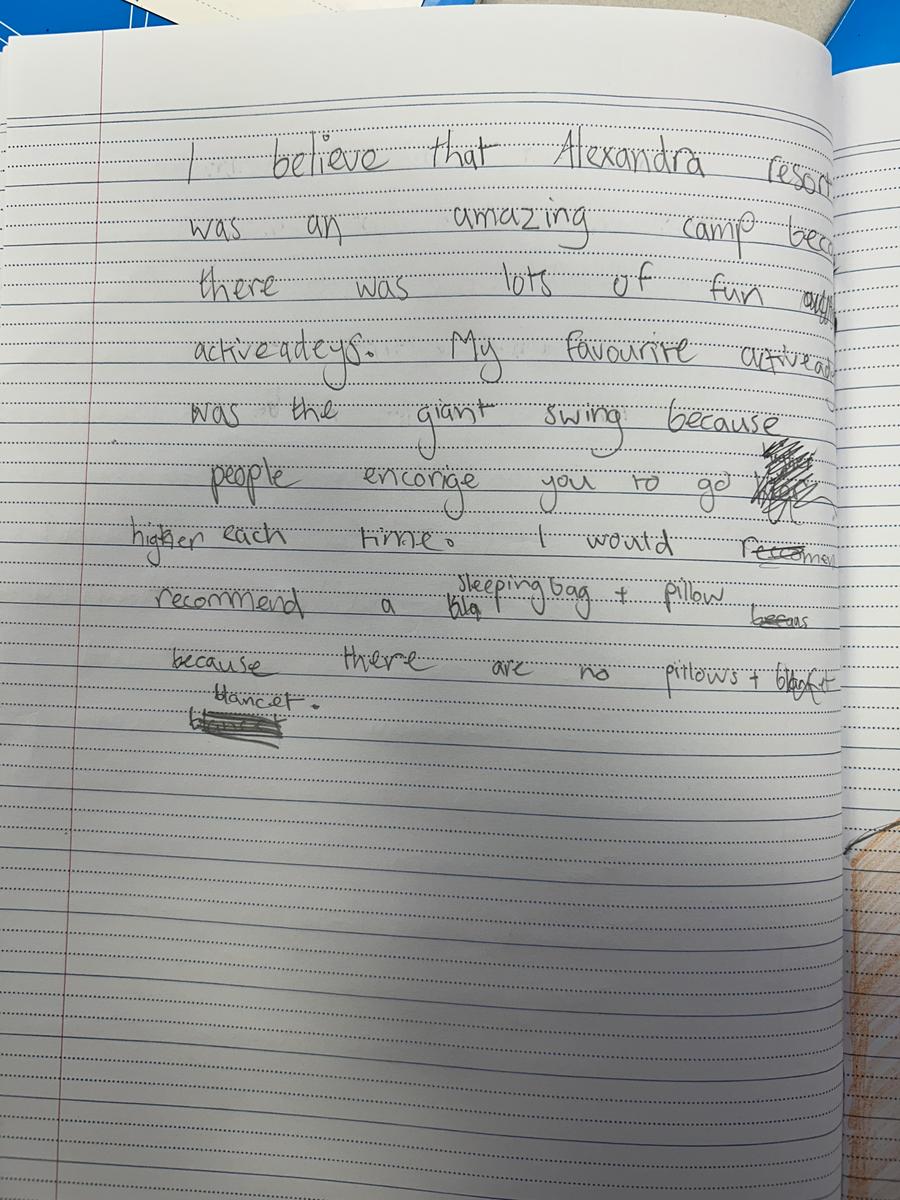 I believe that Alexandra resort
was an amazing camp beca
there was lots of fun
activeadeys. My favourite activead
was the giant swing because
people encorige you to go
higher each time. I would reccomen
recommend a bla sleepingbag + pillow
because there are no pillows +
blancet.